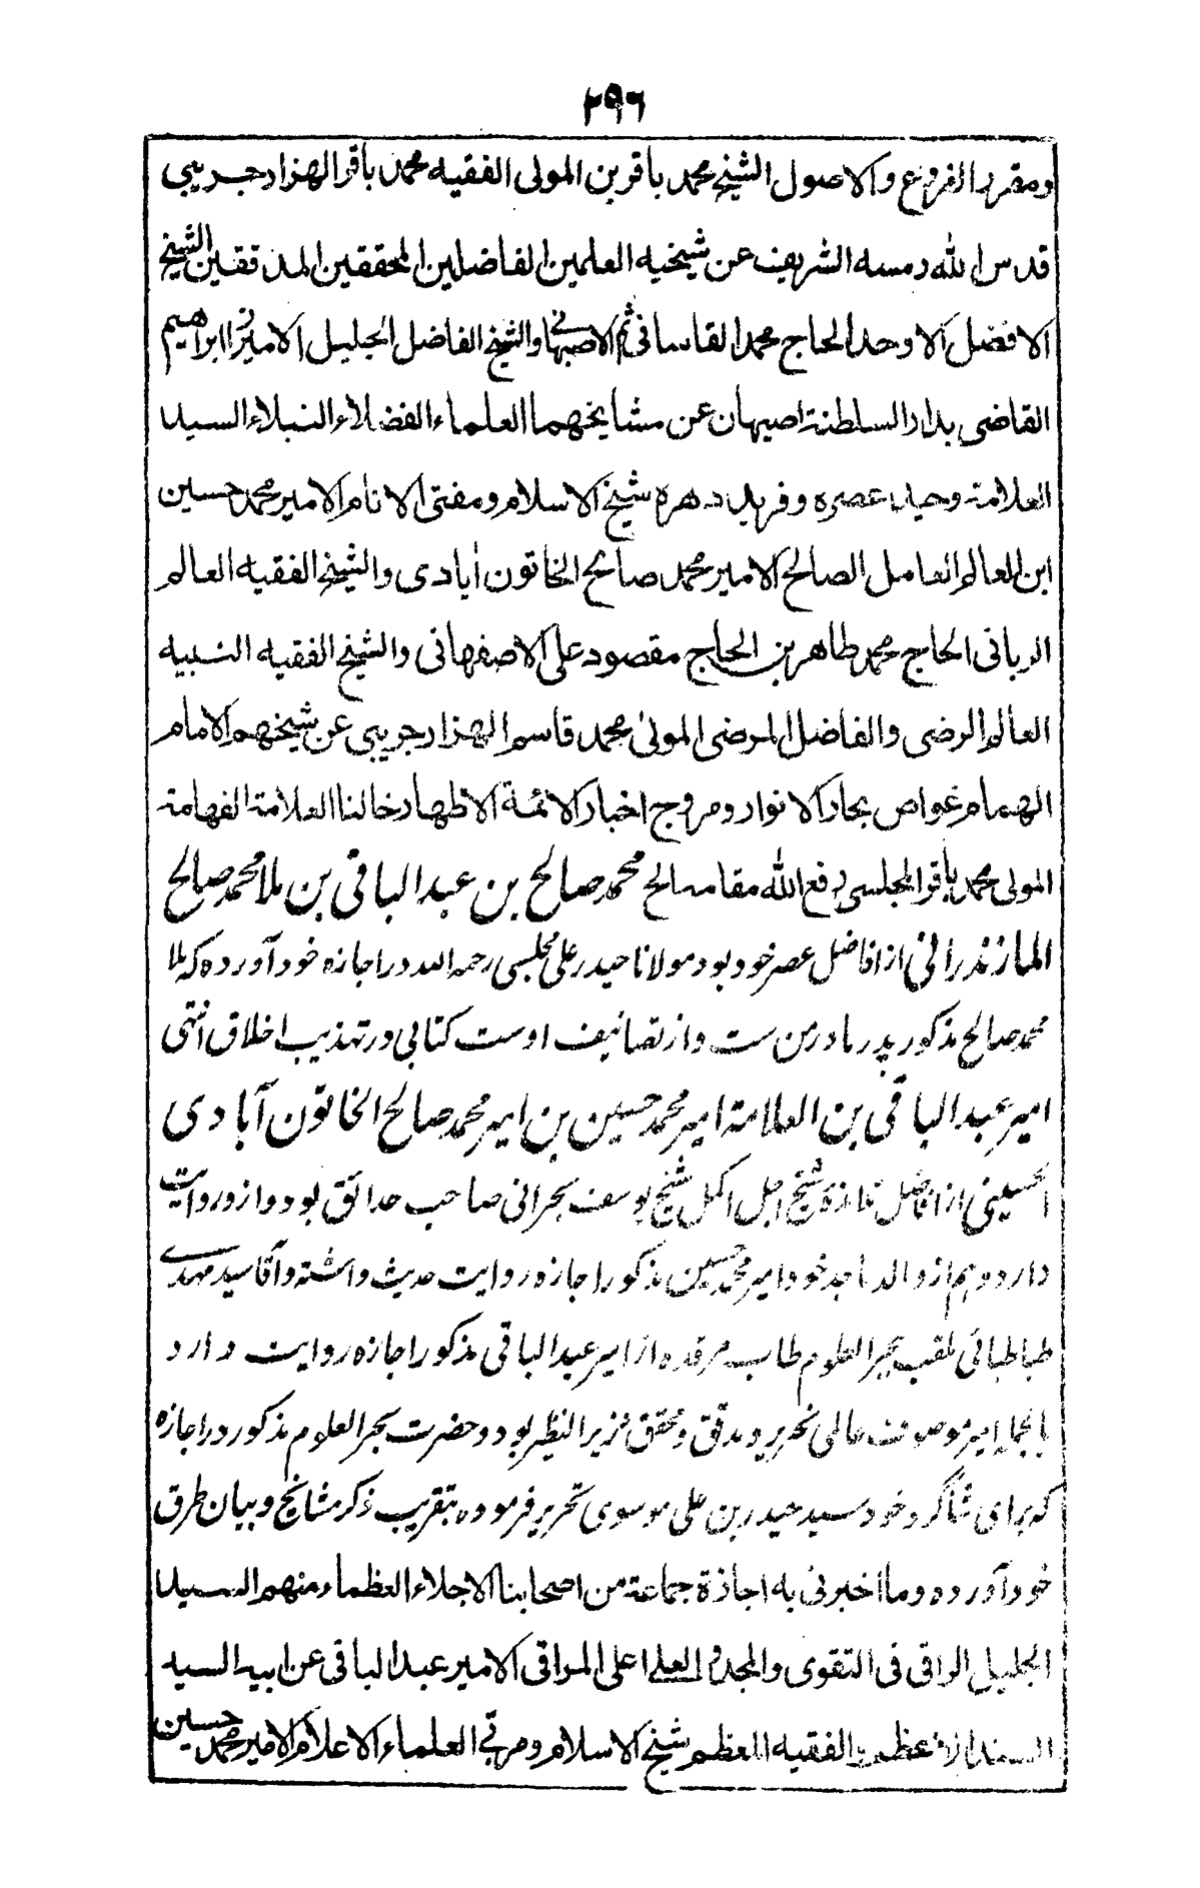 ۲۹۶
ومقرر الفروع والاصول الشیخ محمد باقر بن المولی الفقیه محمد باقر الهزارجریبی
قدس الله رمسه الشریف عن شیخیه العلمین الفاضلین المحققین المدققین الشیخ
الافضل الاوحد الحاج محمد القاسانی ثم الاصبهانی والشیخ الفاضل الجلیل الامیرزا ابراهیم
القاضی بدار السلطنة اصبهان عن مشایخهما العلماء الفضلاء النبلاء السید
العلامة وحید عصره وفرید دهره شیخ الاسلام ومفتی الانام الامیر محمد حسین
ابن العالم العامل الصالح الامیر محمد صالح الخاتون ابادی والشیخ الفقیه العالم
الربانی الحاج محمد طاهر بن الحاج مقصود علی الاصفهانی والشیخ الفقیه النبیه
العالم الرضی والفاضل المرضی المولی محمد قاسم الهزارجریبی عن شیخهم الامام
الهمام غواص بحار الانوار ومروج اخبار الائمة الاطهار خالنا العلامة الفهامة
المولی محمد باقر المجلسی رفع الله مقامه الخ محمد صالح بن عبد الباقی بن ملا محمد صالح
المازندرانی از افاضل عصر خود بود مولانا حیدر علی مجلسی رحمه الله در اجازه خود آورده که ملا
محمد صالح مذکور پدر مادر من ست و از تصانیف اوست کتابی در تهذیب اخلاق انتهی
امیر عبد الباقی بن العلامة امیر محمد حسین بن امیر محمد صالح الخاتون آبادی
الحسینی از افاضل تلامذه شیخ اجل اکمل شیخ یوسف بحرانی صاحب حدائق بود و ازو روایت
دارد و هم از والد ماجد خود امیر محمد حسین مذکور اجازه روایت حدیث داشته و آقا سید مهدی
طباطبائی ملقب ببحر العلوم طاب مرقده از امیر عبد الباقی مذکور اجازه روایت دارد
بالجمله امیر موصوف عالی نحریر و مدقق و محقق عزیز النظیر بود و حضرت بحر العلوم مذکور در اجازه
که برای شاگرد خود سید حیدر بن علی موسوی تحریر فرموده بتقریب ذکر مشائخ و بیان طرق
خود آورده وما اخبرنی به اجازة جماعة من اصحابنا الاجلاء العظماء منهم السید
الجلیل الراقی فی التقوی والمجد والعلی اعلی المراقی الامیر عبد الباقی عن ابیه السید
السند الاعظم والفقیه المعظم شیخ الاسلام ومربی العلماء الاعلام الامیر محمد حسین